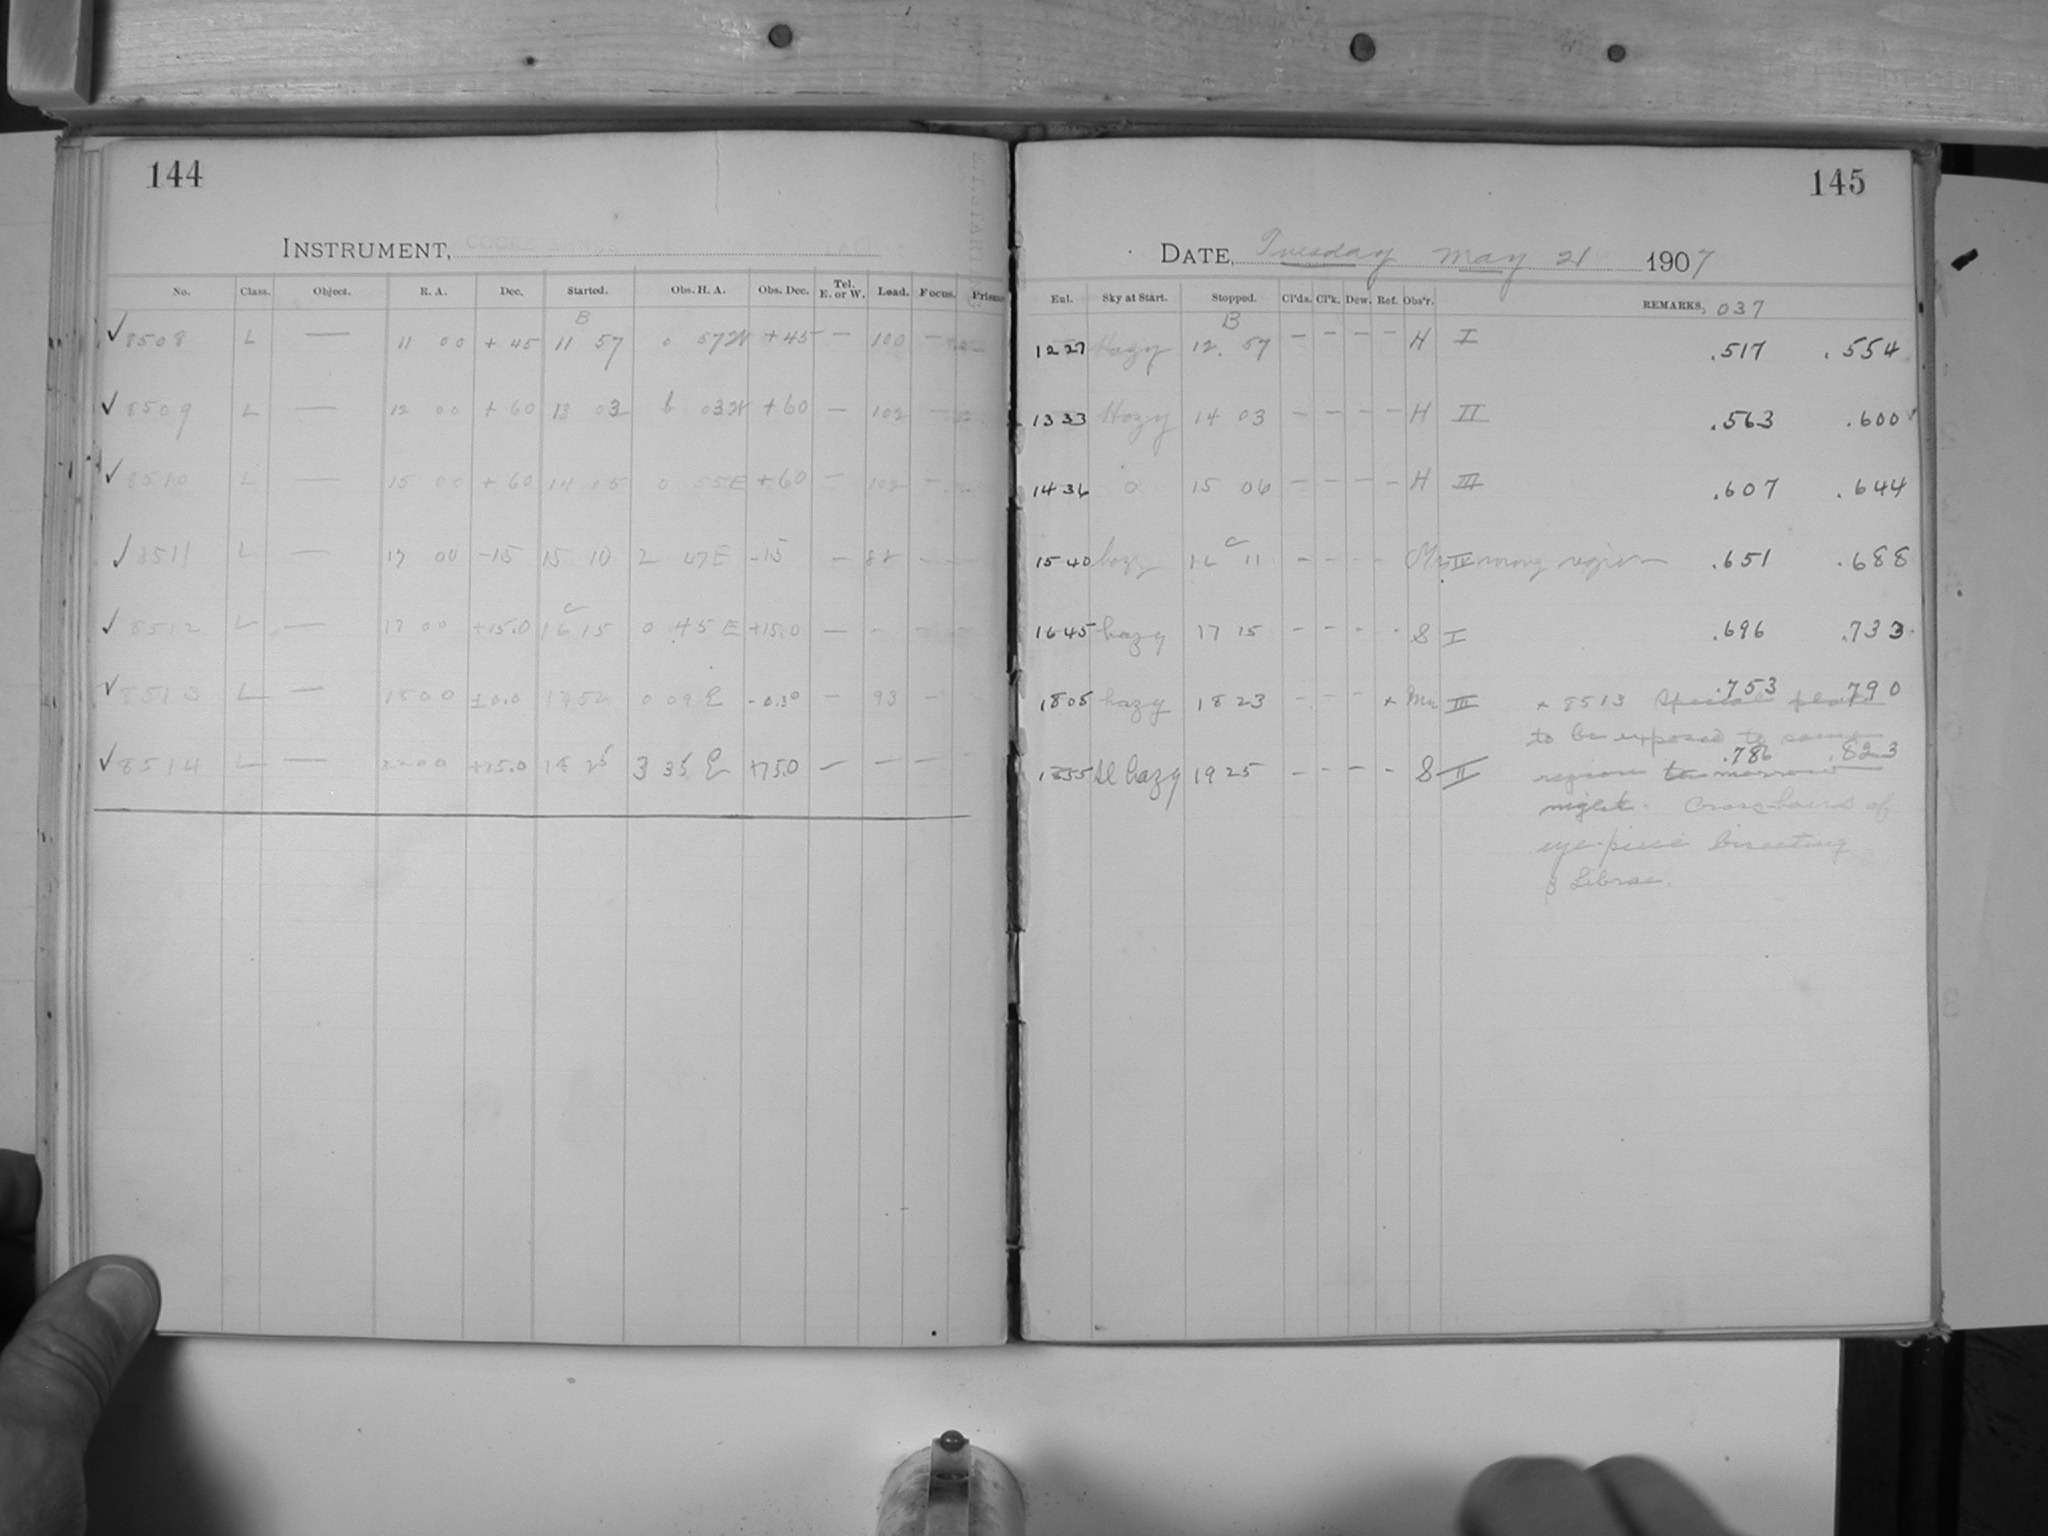 144
INSTRUMENT, COOKE LENSE
No. Class. Object. R. A. Dec. Started. Obs. H. A. Obs. Dec. Tel. E. or W. Lead. Focus. Prisms
B
✓ 8508 L — 11 00 + 45 11 57 0 57W +45 — 100 —
✓ 8509 L — 12 00 + 60 13 03 03W +60 — 102 —
✓ 8510 L — 15 00 + 60 14 05 0 55E +60 — 102 —
✓ 8511 L — 17 00 -15 15 10 2 E -15 — 82 —
c
✓ 8512 L — 17 00 +15.0 16 15 0 45 E +15.0 — -
✓ 8513 L — 18 00 ±0.0 17 52 0 09 E -0.3° — 93 —
✓ 8514 L — 00 +75.0 18 25 3 35 E +75.0 — — —
145
DATE, Tuesday May 21 1907
Eul. Sky at Start. Stopped. Cl'ds. Cl'k. Dew. Ref. Obs'r. REMARKS, 037
B
12 27 Hazy 12 57 — — — — H I .517 .554
13 33 Hazy 14 03 — — — — H II .563 .600
14 36 0 15 06 — — — — H III .607 .644
c
15 40 hazy 16 11 - - - - IV wrong region .651 .688
16 45 hazy 17 15 - - - - S I .696 .733
18 05 hazy 18 23 - - - + Mn III .753 .790
+ 8513 Special plate
to be exposed to same
18 55 Sl hazy 19 25 - - - - S II .786 .823
region to-morrow
night. Cross-hairs of
eye-piece bisecting
β Librae.